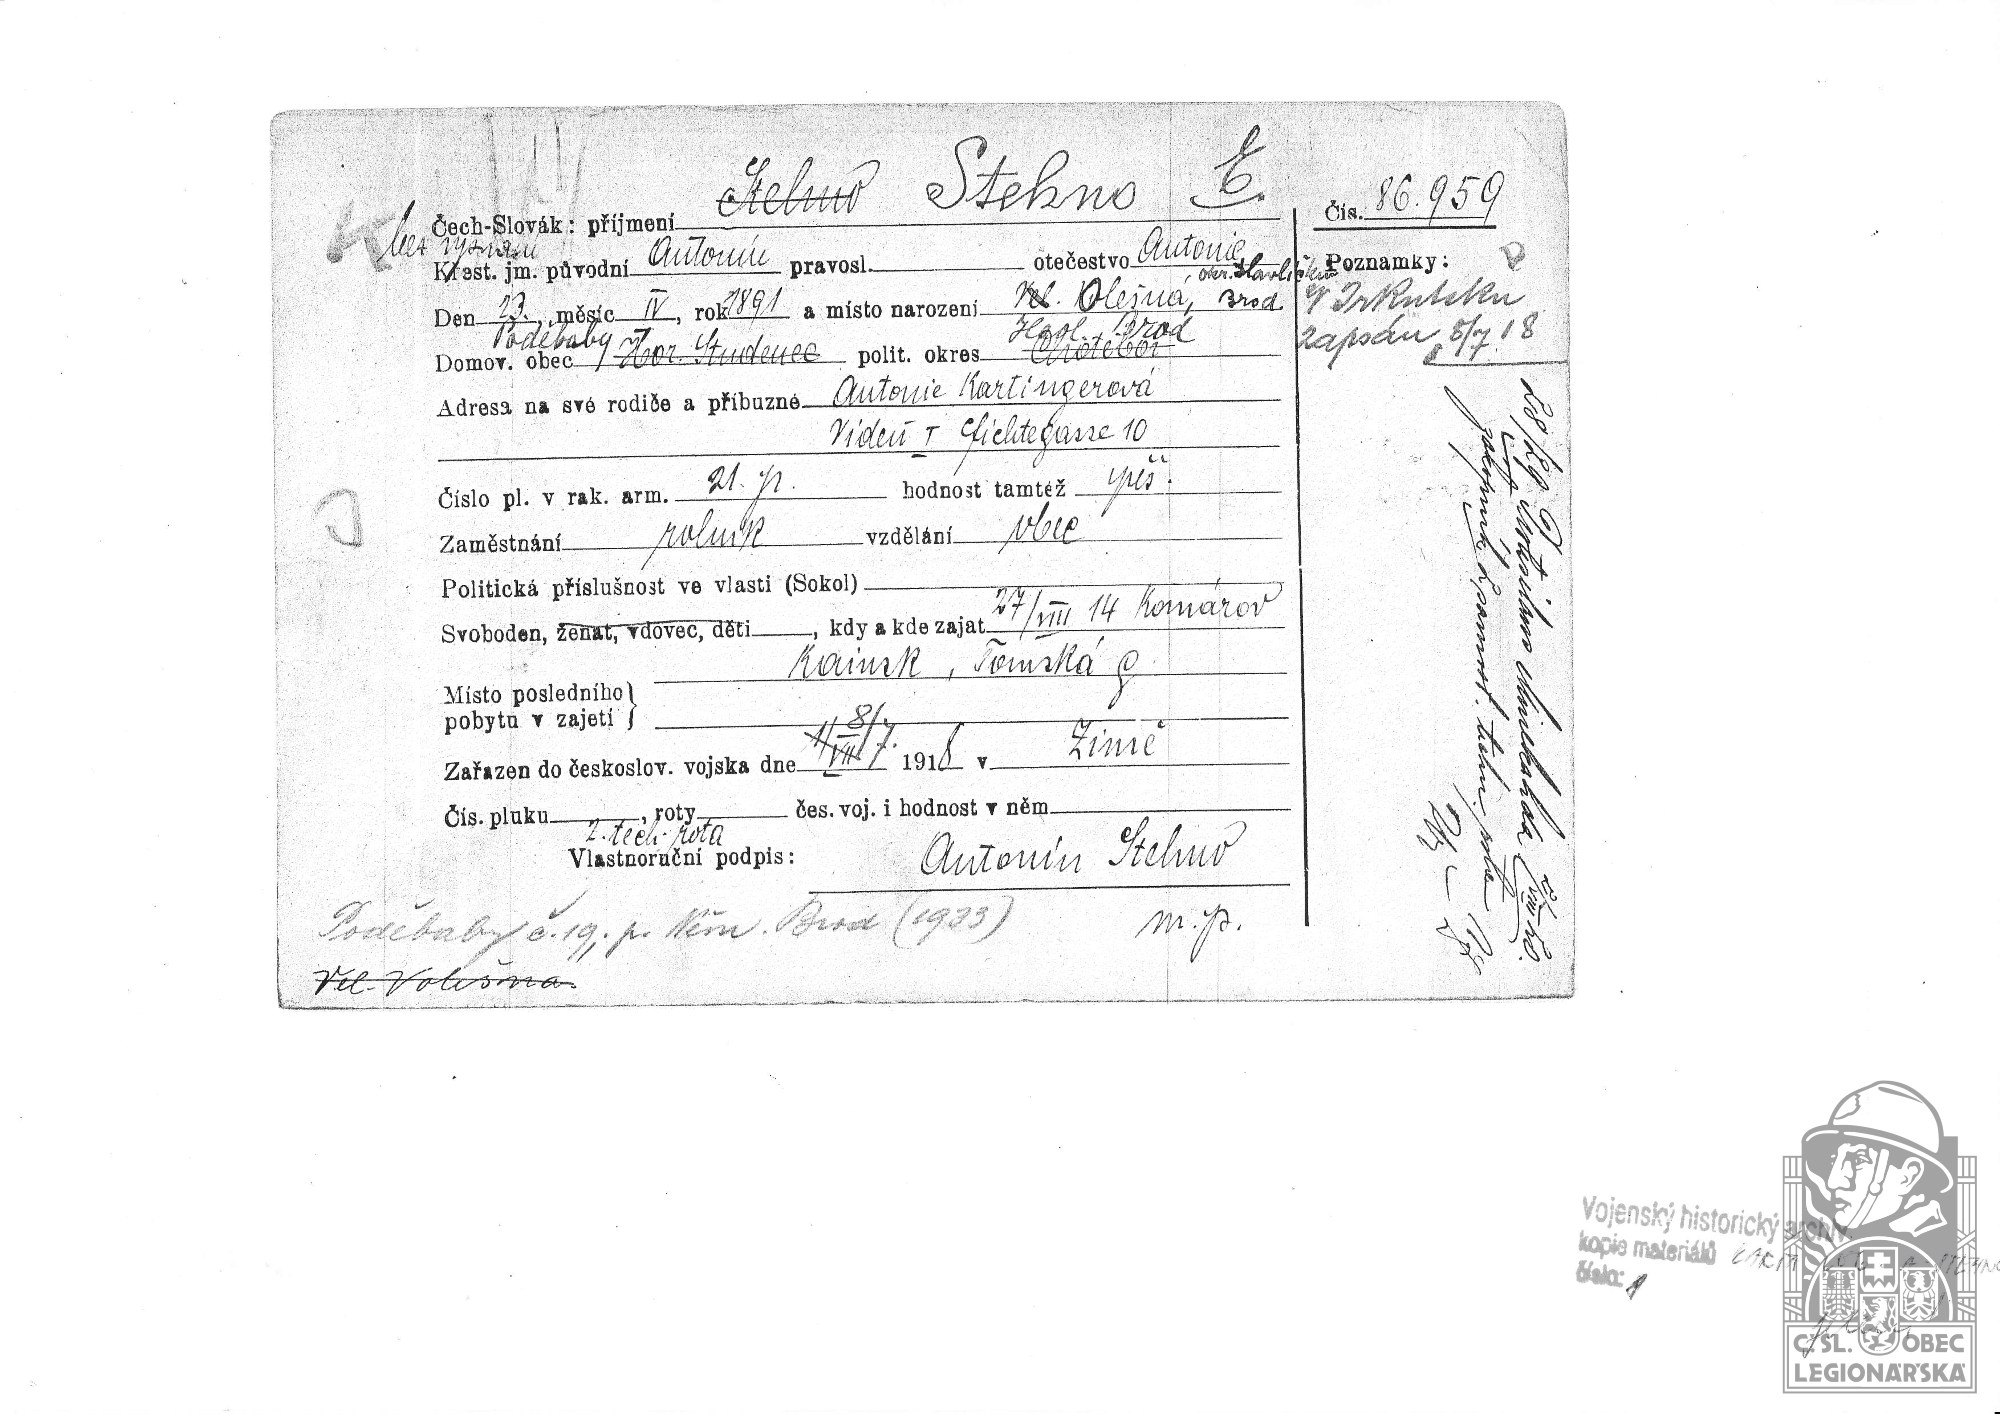 Stehno Stehno E.
Čech-Slovák: příjmení
Čís. 86.959
bez vyznání
Křest. jm. původní Antonín pravosl. otečestvo Antonie
Poznamky:
okr. Havlíčkův
Den 23., měsíc IV, rok 1891 a místo narození Vel. Olešná, Brod
V Irkutsku
zapsán 8/7 18
Poděbaby Hgol. Brod
Domov. obec Hor. Studenec polit. okres Chotěboř
Adresa na své rodiče a příbuzné Antonie Kartingerová
Vídeň I Fichtegasse 10
Číslo pl. v rak. arm. 21. p. hodnost tamtéž pěš.
Zaměstnání rolník vzdělání obec
Politická příslušnost ve vlasti (Sokol)
Svoboden, ženat, vdovec, děti, kdy a kde zajat 27/VIII 14 Komárov
Kainsk, Tomská g.
Místo posledního
pobytu v zajetí
8/7.
Zařazen do českoslov. vojska dne 1/VII 1918 v Zimě
Čís. pluku, roty čes. voj. i hodnost v něm
2. tech. rota
Vlastnoruční podpis: Antonín Stehno
m.p.
Poděbaby č. 19, p. Něm. Brod (1933)
Vel. Volešna
Vojenský historický archiv
kopie materiálů
číslo: 1
Č.SL. OBEC
LEGIONÁŘSKÁ